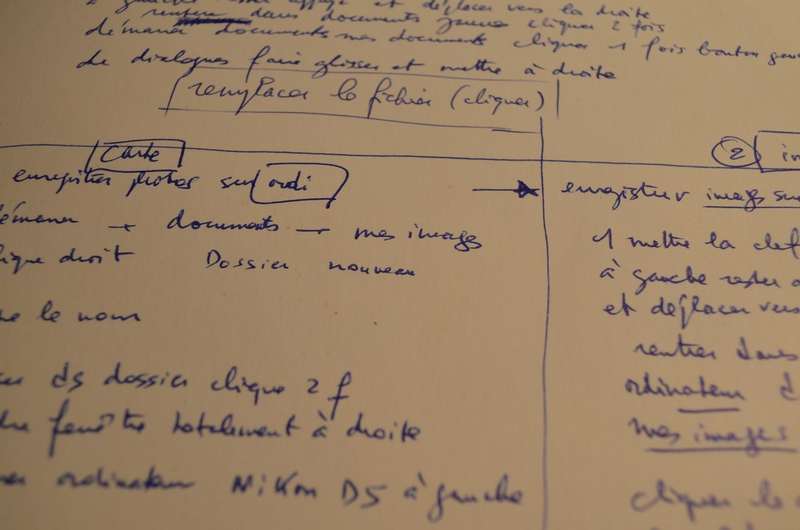 et déplacer vers la droite
rentrer dans documents jaunes cliquer 2 fois
documents mes documents cliquer 1 fois bouton
de dialogues faire glisser et mettre à droite
remplacer le fichier (cliquer)
Carte
enregistrer photos sur ordi
→ documents → mes images
droit Dossier nouveau
le nom
ds dossier clique 2 f
fenêtre totalement à droite
ordinateur NiKon D5 à gauche
②
→ enregistrer images sur
1 mettre la clef
à gauche rester
et déplacer vers
rentrer dans
ordinateur
mes images
cliquer le